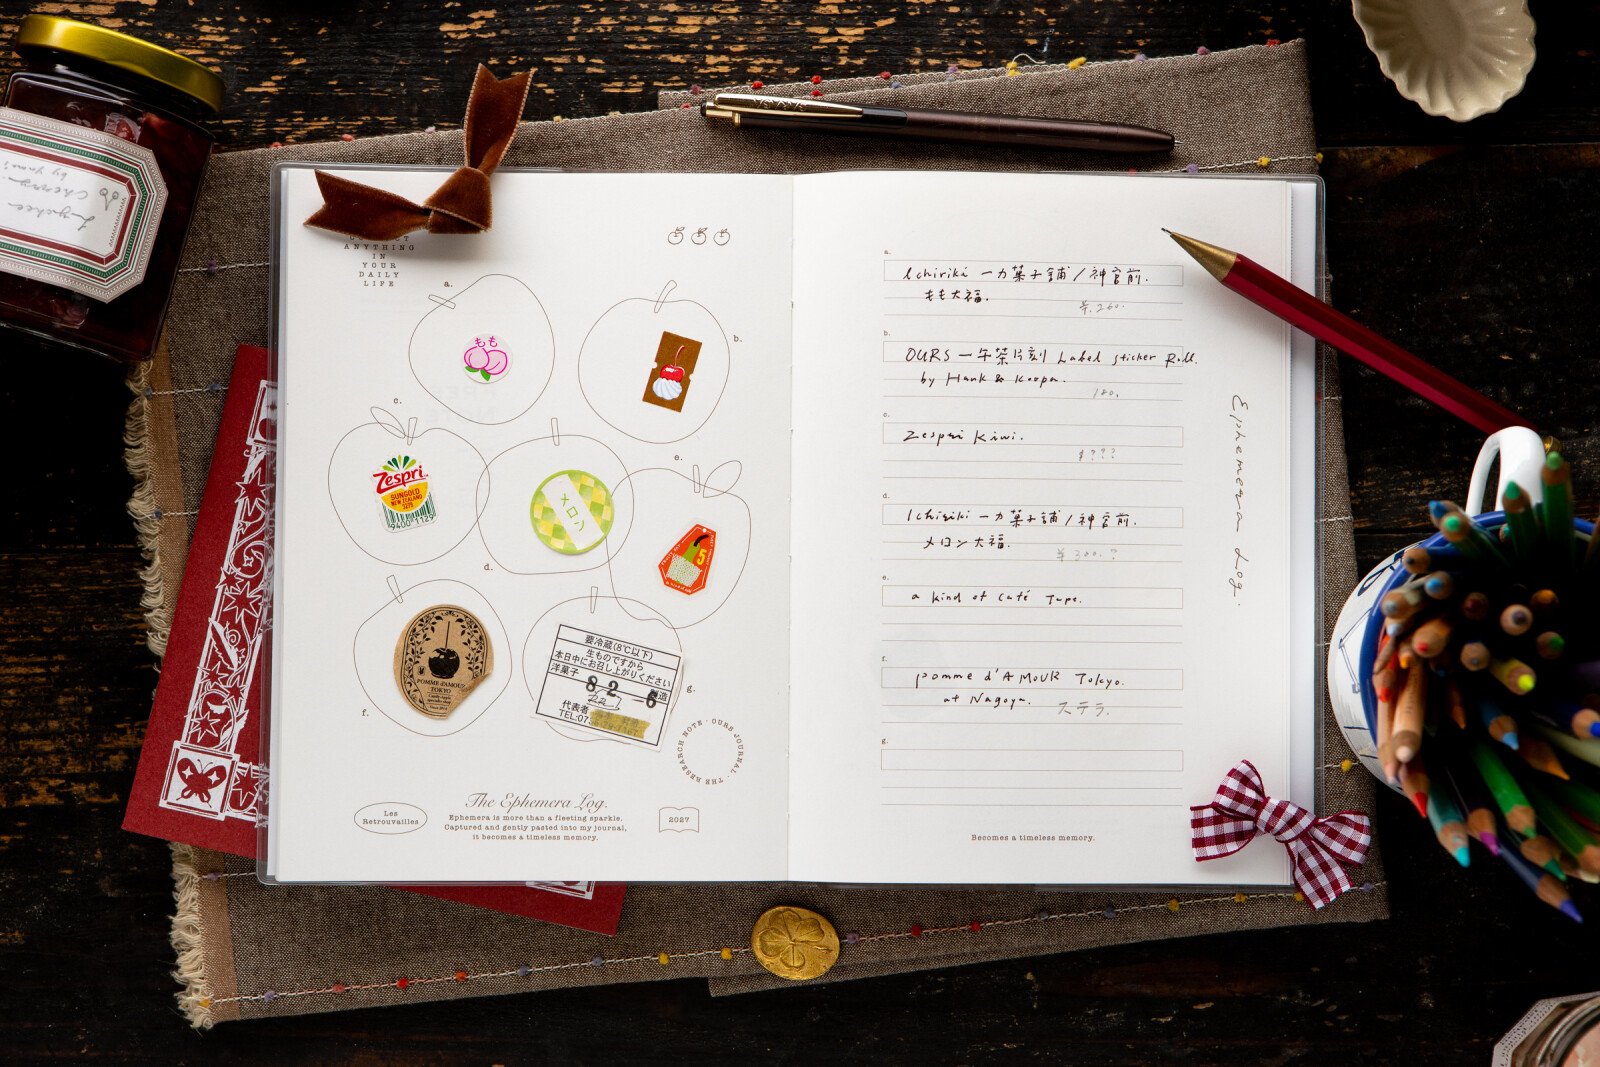 ANYTHING
IN
YOUR
DAILY
LIFE
a.
もも
b.
c.
Zespri
SUNGOLD
NEW ZEALAND
3279
9400 1129
d.
メロン
e.
5
f.
POMME d'AMOUR
TOKYO
g.
要冷蔵(8℃以下)
生ものですから
本日中にお召し上がりください
洋菓子
8 2 6
製造
代表者
TEL:07
THE RESEARCH NOTE · OURS JOURNAL ·
Les
Retrouvailles
The Ephemera Log.
Ephemera is more than a fleeting sparkle.
Captured and gently pasted into my journal,
it becomes a timeless memory.
2027
a.
Ichiriki 一力菓子舗/神宮前.
もも大福.
¥.260.
b.
OURS 一午茶片刻 Label sticker Roll.
by Hank & Koopa.
180.
c.
Zespri Kiwi.
$???
d.
Ichiriki 一力菓子舗/神宮前.
メロン大福.
¥300.?
e.
a kind of Café Tape.
f.
pomme d'AMOUR Tokyo.
at Nagoya.
ステラ.
g.
Becomes a timeless memory.
Ephemera Log.
Cherry
by